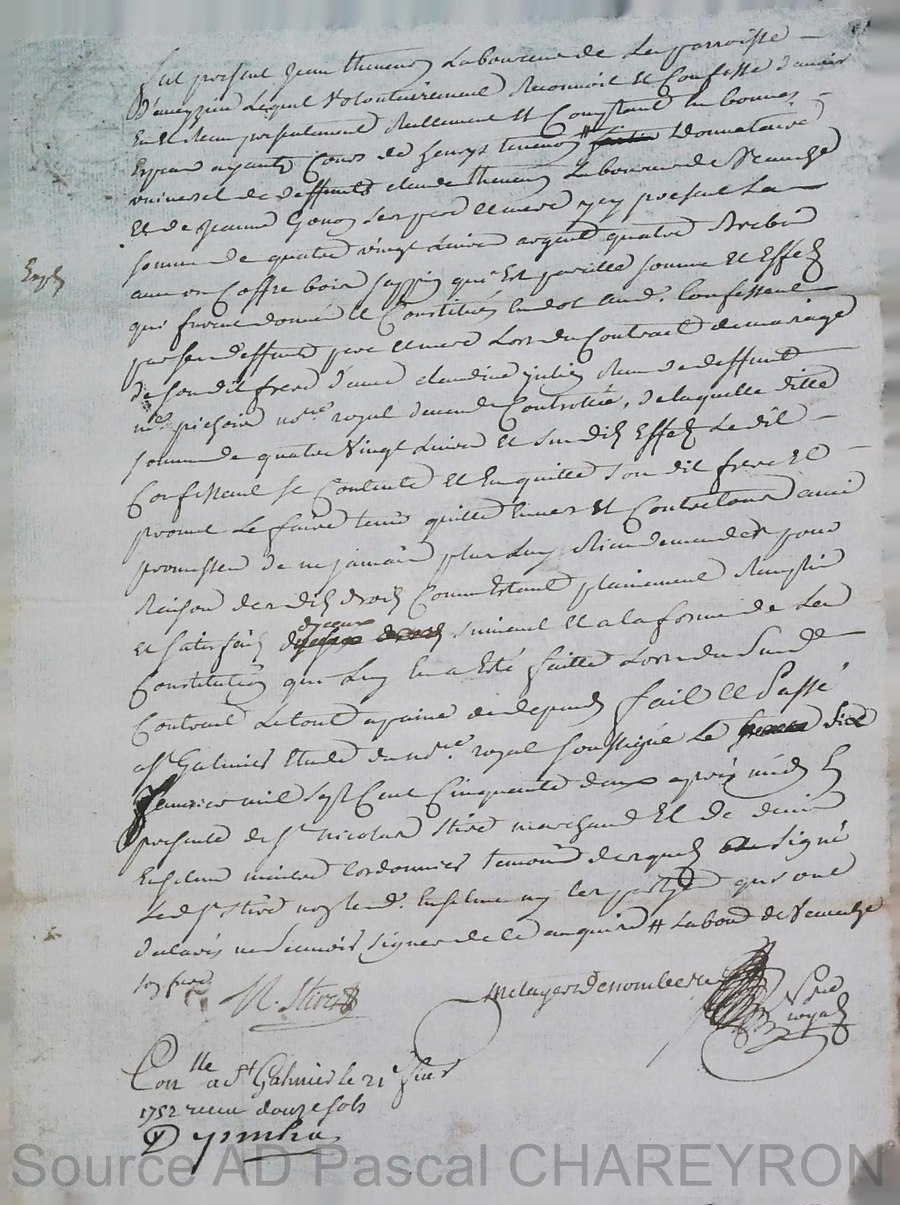 fut present jean thevenon Laboureur de La parroisse
D'aveyzieu Lequel Volontairement Reconnoit et Confesse d'avoir
Eu et Receu presentement Reellement et Comptant En bonnes
Espece ayants Cours de tevenon # donnataire
universel de deffunts claude thevenon Laboureur de
Et de jeanne Ses pere et mere icy present La
somme de quatre vingt Livre argent quatre
aune un Coffre bois sappin qui Est pareille somme Et Effets
qui furent donné et Constitués En dot aud. Confessant
par Sesd. deffunts pere et mere Lors du Contract de mariage
de Son dit frere d'avec claudine jullien Receu de deffunt
me. pichon nore. royal Controllée, de laquelle ditte
somme de quatre Vingt Livre et Susdits Effets Le dit
Confessant Se Contente Et En quitte Son dit frere Et
promet Le faire tenir quitte Envers Et Contre tous avec
promesse de ne jamais plus Luy Rien demander pour
Raison desdits droits Comme Estant plainement Rempli
et satisfait d'iceux suivant Et a la forme de La
Constitution qui Luy En a Esté faitte Lors du Susd.
Contract Le tout a paine de depends fait Et Passé
a St Galmier Etude du nore. royal Soussigné Le dix
janvier mil Sept Cent Cinquante deux apres midy En
presence de Sr nicolas Stive marchand Et de denis
Cordonnier temoins desquels signé
Led. Sr Stive non led. ny les partyes qui ont
declaré ne Scavoir signer de ce enquis # Labour. de
son frere
N. Stive
Metayer Denombere Nre
royal
Conlle a St Galmier le 21e
1752 receu douze sols
Source AD Pascal CHAREYRON